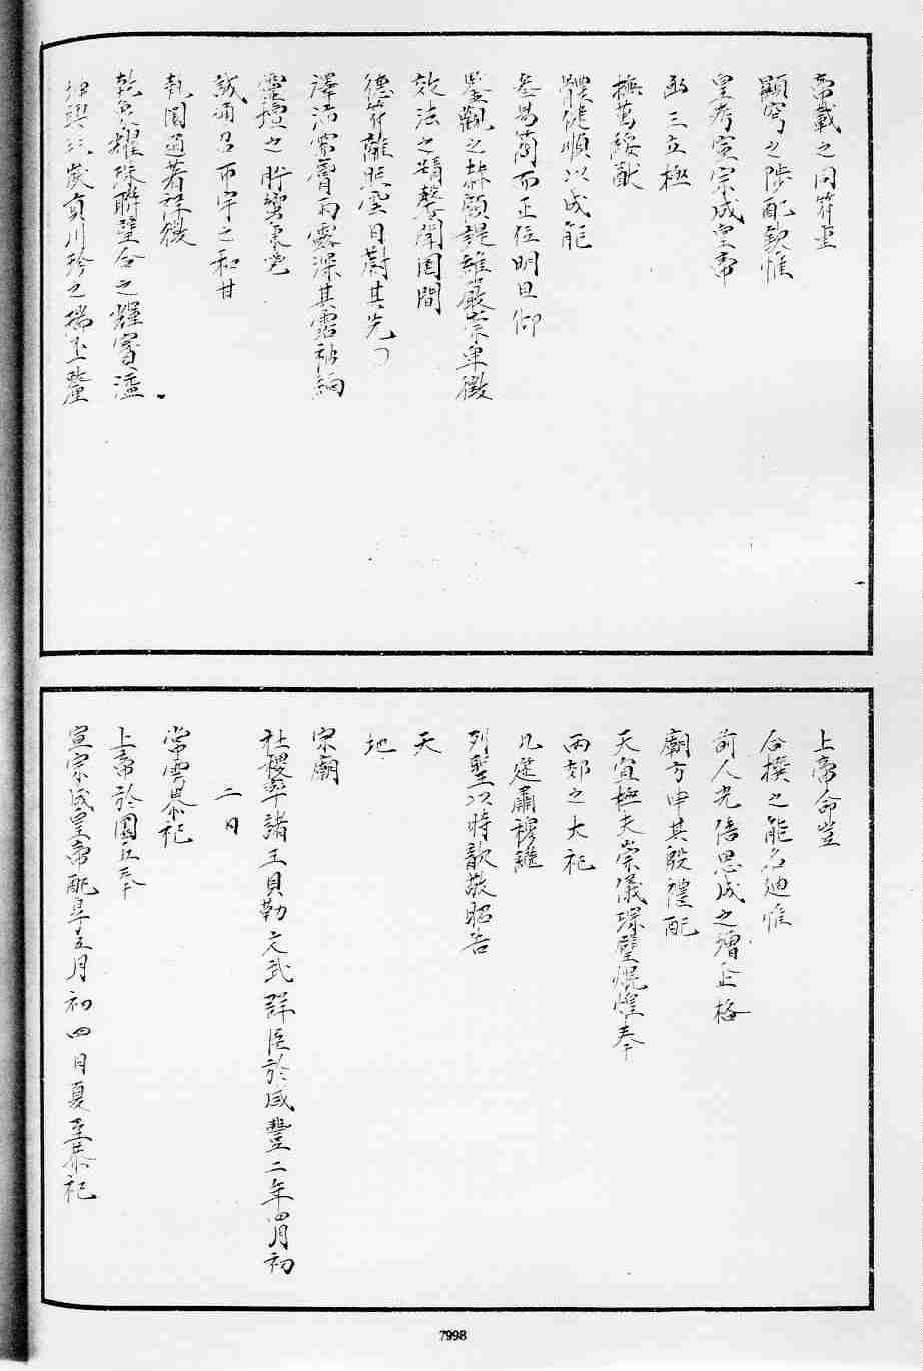 帝載之同符皇
顯穹之陟配欽惟
皇考宣宗成皇帝
三立極
撫萬綏猷
體健順以成能
參易簡而正位明旦仰
鑒觀之赫顧諟維嚴崇卑徵
效法之精馨聞罔間
德符離照雲日蔚其光
澤沛常膏雨露深其
靈壇之肸蠁東
誠通召市宇之和甘
執圜通著祥徵
乾象耀珠聯璧合之輝
坤輿
上帝命豈
合撰之能名迪惟
前人光倍思成之增正格
廟方申其殷禮配
天宜極夫崇儀琮璧焜煌奉
兩郊之大祀
几筵肅穆繼
列聖以時歆敬昭告
天
地
宗廟
社稷率諸王貝勒文武群臣於咸豐二年四月初
二日
常雩恭祀
上帝於圜丘奉
宣宗成皇帝配享五月初四日夏至恭祀
7998